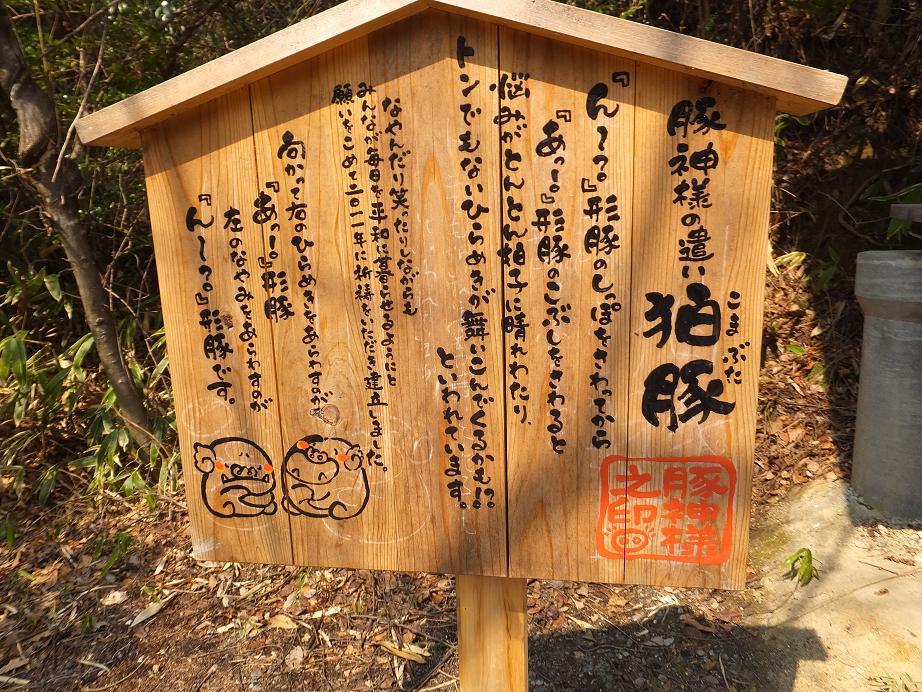 豚神様の遣い 狛豚
こま ぶた
『ん〜？。』形豚のしっぽをさわってから
『あっ！。』形豚のこぶしをさわると
悩みがとんとん拍子に晴れわたり、
トンでもないひらめきが舞いこんでくるかも!?
といわれています。
なやんだり笑ったりしながらも
みんなが毎日を平和に暮らせるようにと
願いをこめて二〇一一年に祈祷をいただき建立しました。
向かって右のひらめきをあらわすのが
『あっ！。』形豚
左のなやみをあらわすのが
『ん〜？。』形豚です。
豚神様
之印